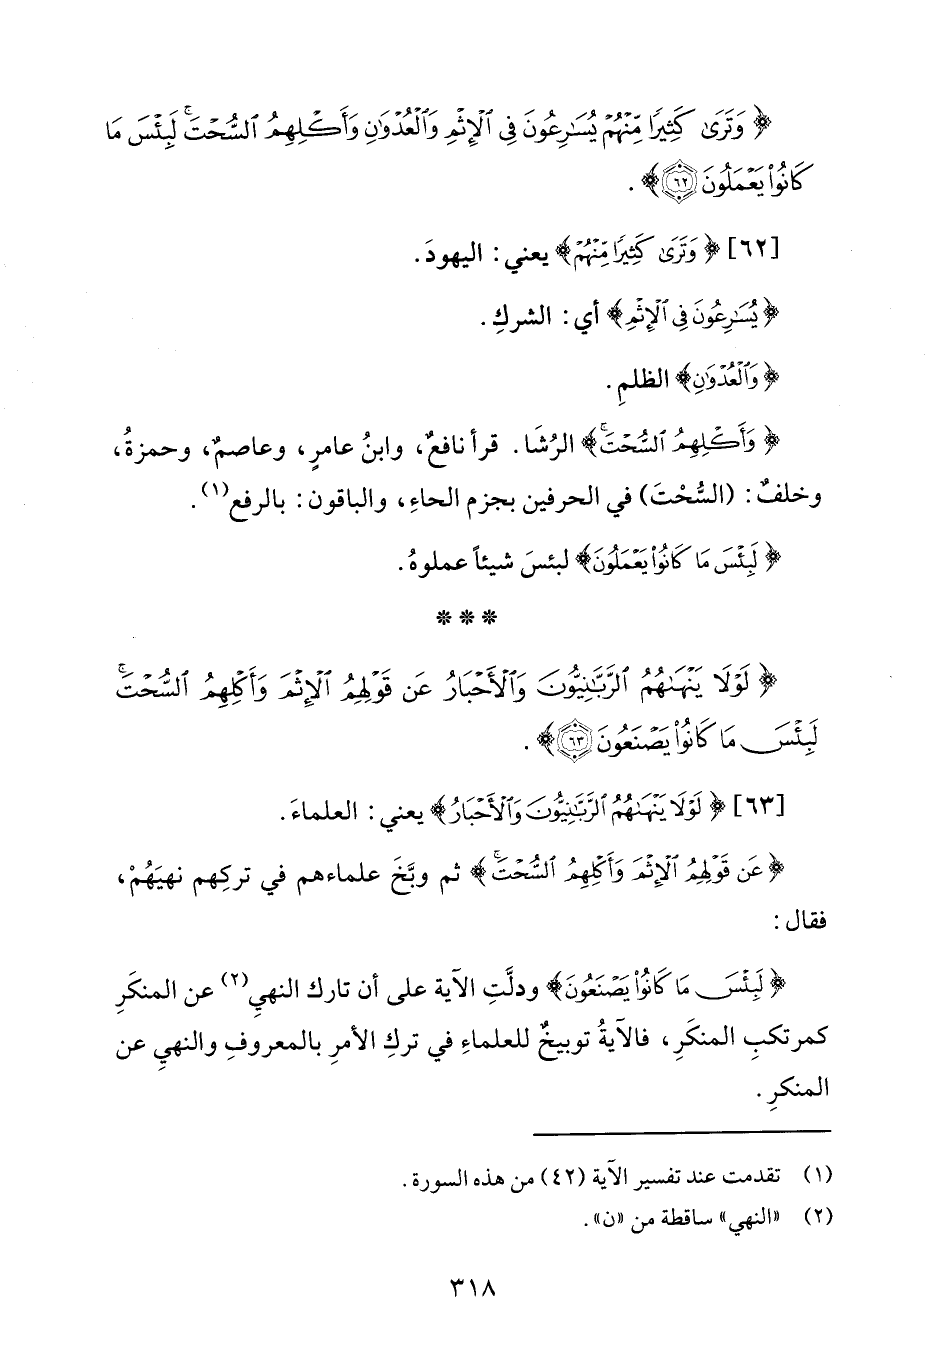 ﴿ وَتَرَىٰ كَثِيرًا مِّنْهُمْ يُسَـٰرِعُونَ فِى ٱلْإِثْمِ وَٱلْعُدْوَٰنِ وَأَكْلِهِمُ ٱلسُّحْتَ ۚ لَبِئْسَ مَا
كَانُوا۟ يَعْمَلُونَ ٦٢ ﴾ .
[٦٢] ﴿ وَتَرَىٰ كَثِيرًا مِّنْهُمْ ﴾ يعني: اليهودَ.
﴿ يُسَـٰرِعُونَ فِى ٱلْإِثْمِ ﴾ أي: الشركِ.
﴿ وَٱلْعُدْوَٰنِ ﴾ الظلمِ.
﴿ وَأَكْلِهِمُ ٱلسُّحْتَ ۚ ﴾ الرُشَا. قرأ نافعٌ، وابنُ عامرٍ، وعاصمٌ، وحمزةُ،
وخلفٌ: (السُّحْتَ) في الحرفين بجزم الحاءِ، والباقون: بالرفع(١).
﴿ لَبِئْسَ مَا كَانُوا۟ يَعْمَلُونَ ﴾ لبئسَ شيئاً عملوهُ.
* * *
﴿ لَوْلَا يَنْهَىٰهُمُ ٱلرَّبَّـٰنِيُّونَ وَٱلْأَحْبَارُ عَن قَوْلِهِمُ ٱلْإِثْمَ وَأَكْلِهِمُ ٱلسُّحْتَ ۚ
لَبِئْسَ مَا كَانُوا۟ يَصْنَعُونَ ٦٣ ﴾ .
[٦٣] ﴿ لَوْلَا يَنْهَىٰهُمُ ٱلرَّبَّـٰنِيُّونَ وَٱلْأَحْبَارُ ﴾ يعني: العلماءَ.
﴿ عَن قَوْلِهِمُ ٱلْإِثْمَ وَأَكْلِهِمُ ٱلسُّحْتَ ۚ ﴾ ثم وبَّخَ علماءهم في تركِهم نهيَهُمْ،
فقال:
﴿ لَبِئْسَ مَا كَانُوا۟ يَصْنَعُونَ ﴾ ودلَّتِ الآية على أن تارك النهيِ(٢) عن المنكَرِ
كمرتكبِ المنكَرِ، فالآيةُ توبيخٌ للعلماءِ في تركِ الأمرِ بالمعروفِ والنهيِ عن
المنكرِ.
(١) تقدمت عند تفسير الآية (٤٢) من هذه السورة.
(٢) «النهي» ساقطة من «ن».
٣١٨